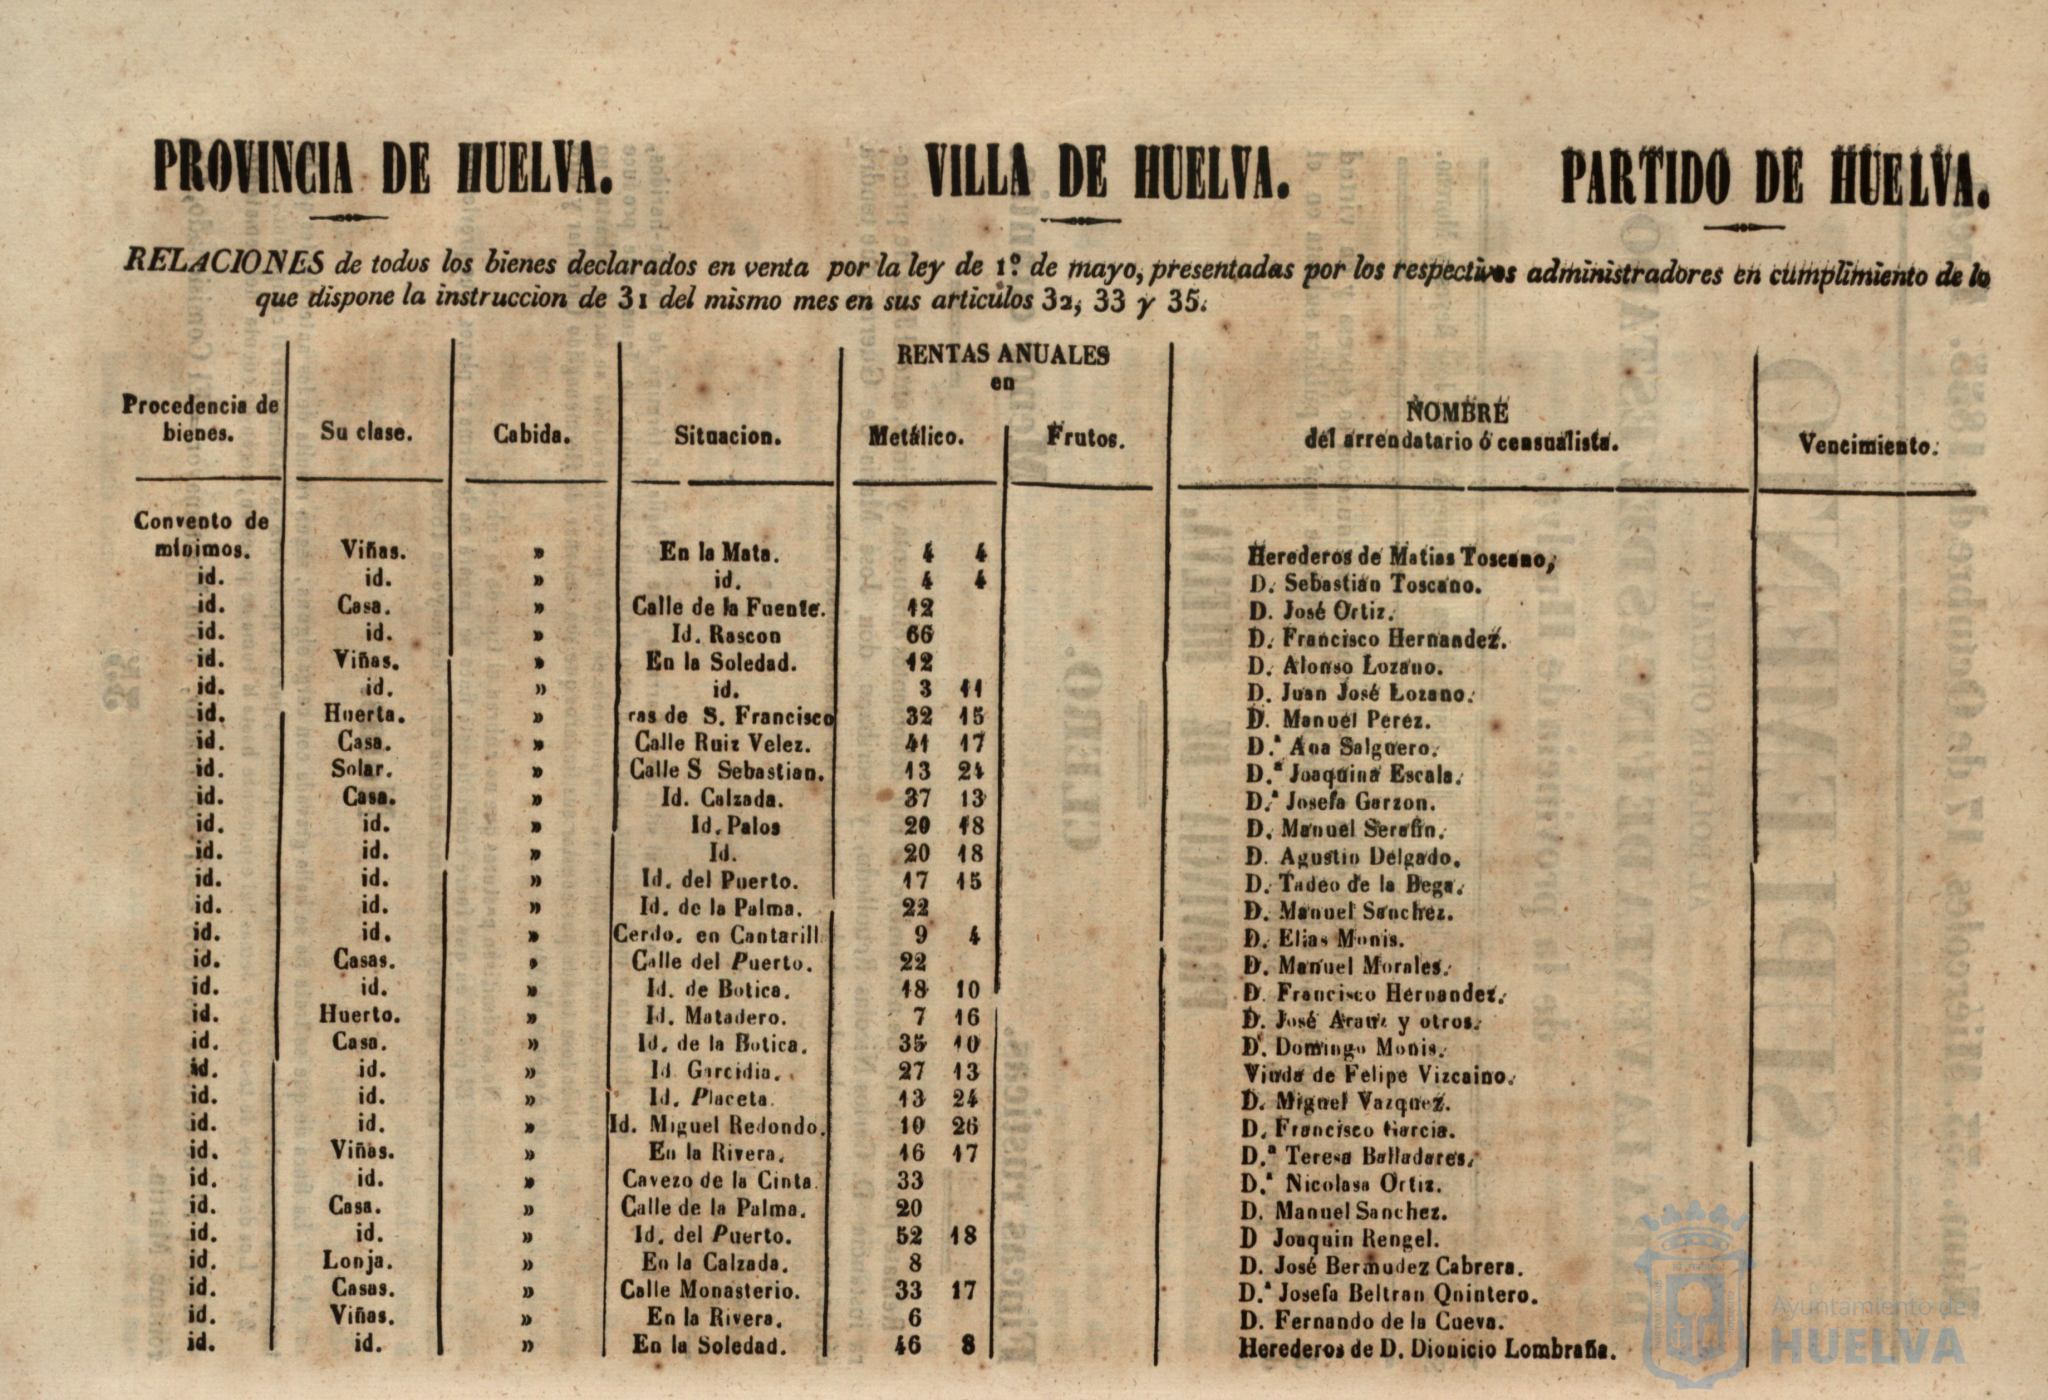 PROVINCIA DE HUELVA. VILLA DE HUELVA. PARTIDO DE HUELVA.
RELACIONES de todos los bienes declarados en venta por la ley de 1º de mayo, presentadas por los respectivos administradores en cumplimiento de lo
que dispone la instruccion de 31 del mismo mes en sus articulos 32, 33 y 35.
RENTAS ANUALES
en
Procedencia de bienes. Su clase. Cabida. Situacion. Metálico. Frutos. NOMBRE del arrendatario ó censualista. Vencimiento.
Convento de
mínimos. Viñas. » En la Mata. 4 4 Herederos de Matias Toscano,
id. id. » id. 4 4 D. Sebastian Toscano.
id. Casa. » Calle de la Fuente. 12 D. José Ortiz.
id. id. » Id. Rascon 66 D. Francisco Hernandez.
id. Viñas. » En la Soledad. 12 D. Alonso Lozano.
id. id. » id. 3 11 D. Juan José Lozano.
id. Huerta. » ras de S. Francisco 32 15 D. Manuel Perez.
id. Casa. » Calle Ruiz Velez. 41 17 D.ª Ana Salguero.
id. Solar. » Calle S Sebastian. 13 24 D.ª Joaquina Escala.
id. Casa. » Id. Calzada. 37 13 D.ª Josefa Garzon.
id. id. » Id. Palos 20 18 D. Manuel Serafin.
id. id. » Id. 20 18 D. Agustin Delgado.
id. id. » Id. del Puerto. 17 15 D. Tadeo de la Bega.
id. id. » Id. de la Palma. 22 D. Manuel Sanchez.
id. id. » Cerdo. en Cantarill 9 4 D. Elias Monis.
id. Casas. » Calle del Puerto. 22 D. Manuel Morales.
id. id. » Id. de Botica. 18 10 D. Francisco Hernandez.
id. Huerto. » Id. Matadero. 7 16 D. José Arauz y otros.
id. Casa. » Id. de la Botica. 35 10 D. Domingo Monis.
id. id. » Id Garcidia. 27 13 Viuda de Felipe Vizcaino.
id. id. » Id. Placeta. 13 24 D. Miguel Vazquez.
id. id. » Id. Miguel Redondo. 10 26 D. Francisco Garcia.
id. Viñas. » En la Rivera. 16 17 D.ª Teresa Balladares.
id. id. » Cavezo de la Cinta. 33 D.ª Nicolasa Ortiz.
id. Casa. » Calle de la Palma. 20 D. Manuel Sanchez.
id. id. » Id. del Puerto. 52 18 D Joaquin Rengel.
id. Lonja. » En la Calzada. 8 D. José Bermudez Cabrera.
id. Casas. » Calle Monasterio. 33 17 D.ª Josefa Beltran Quintero.
id. Viñas. » En la Rivera. 6 D. Fernando de la Cueva.
id. id. » En la Soledad. 46 8 Herederos de D. Dionicio Lombraña.
Ayuntamiento de
HUELVA